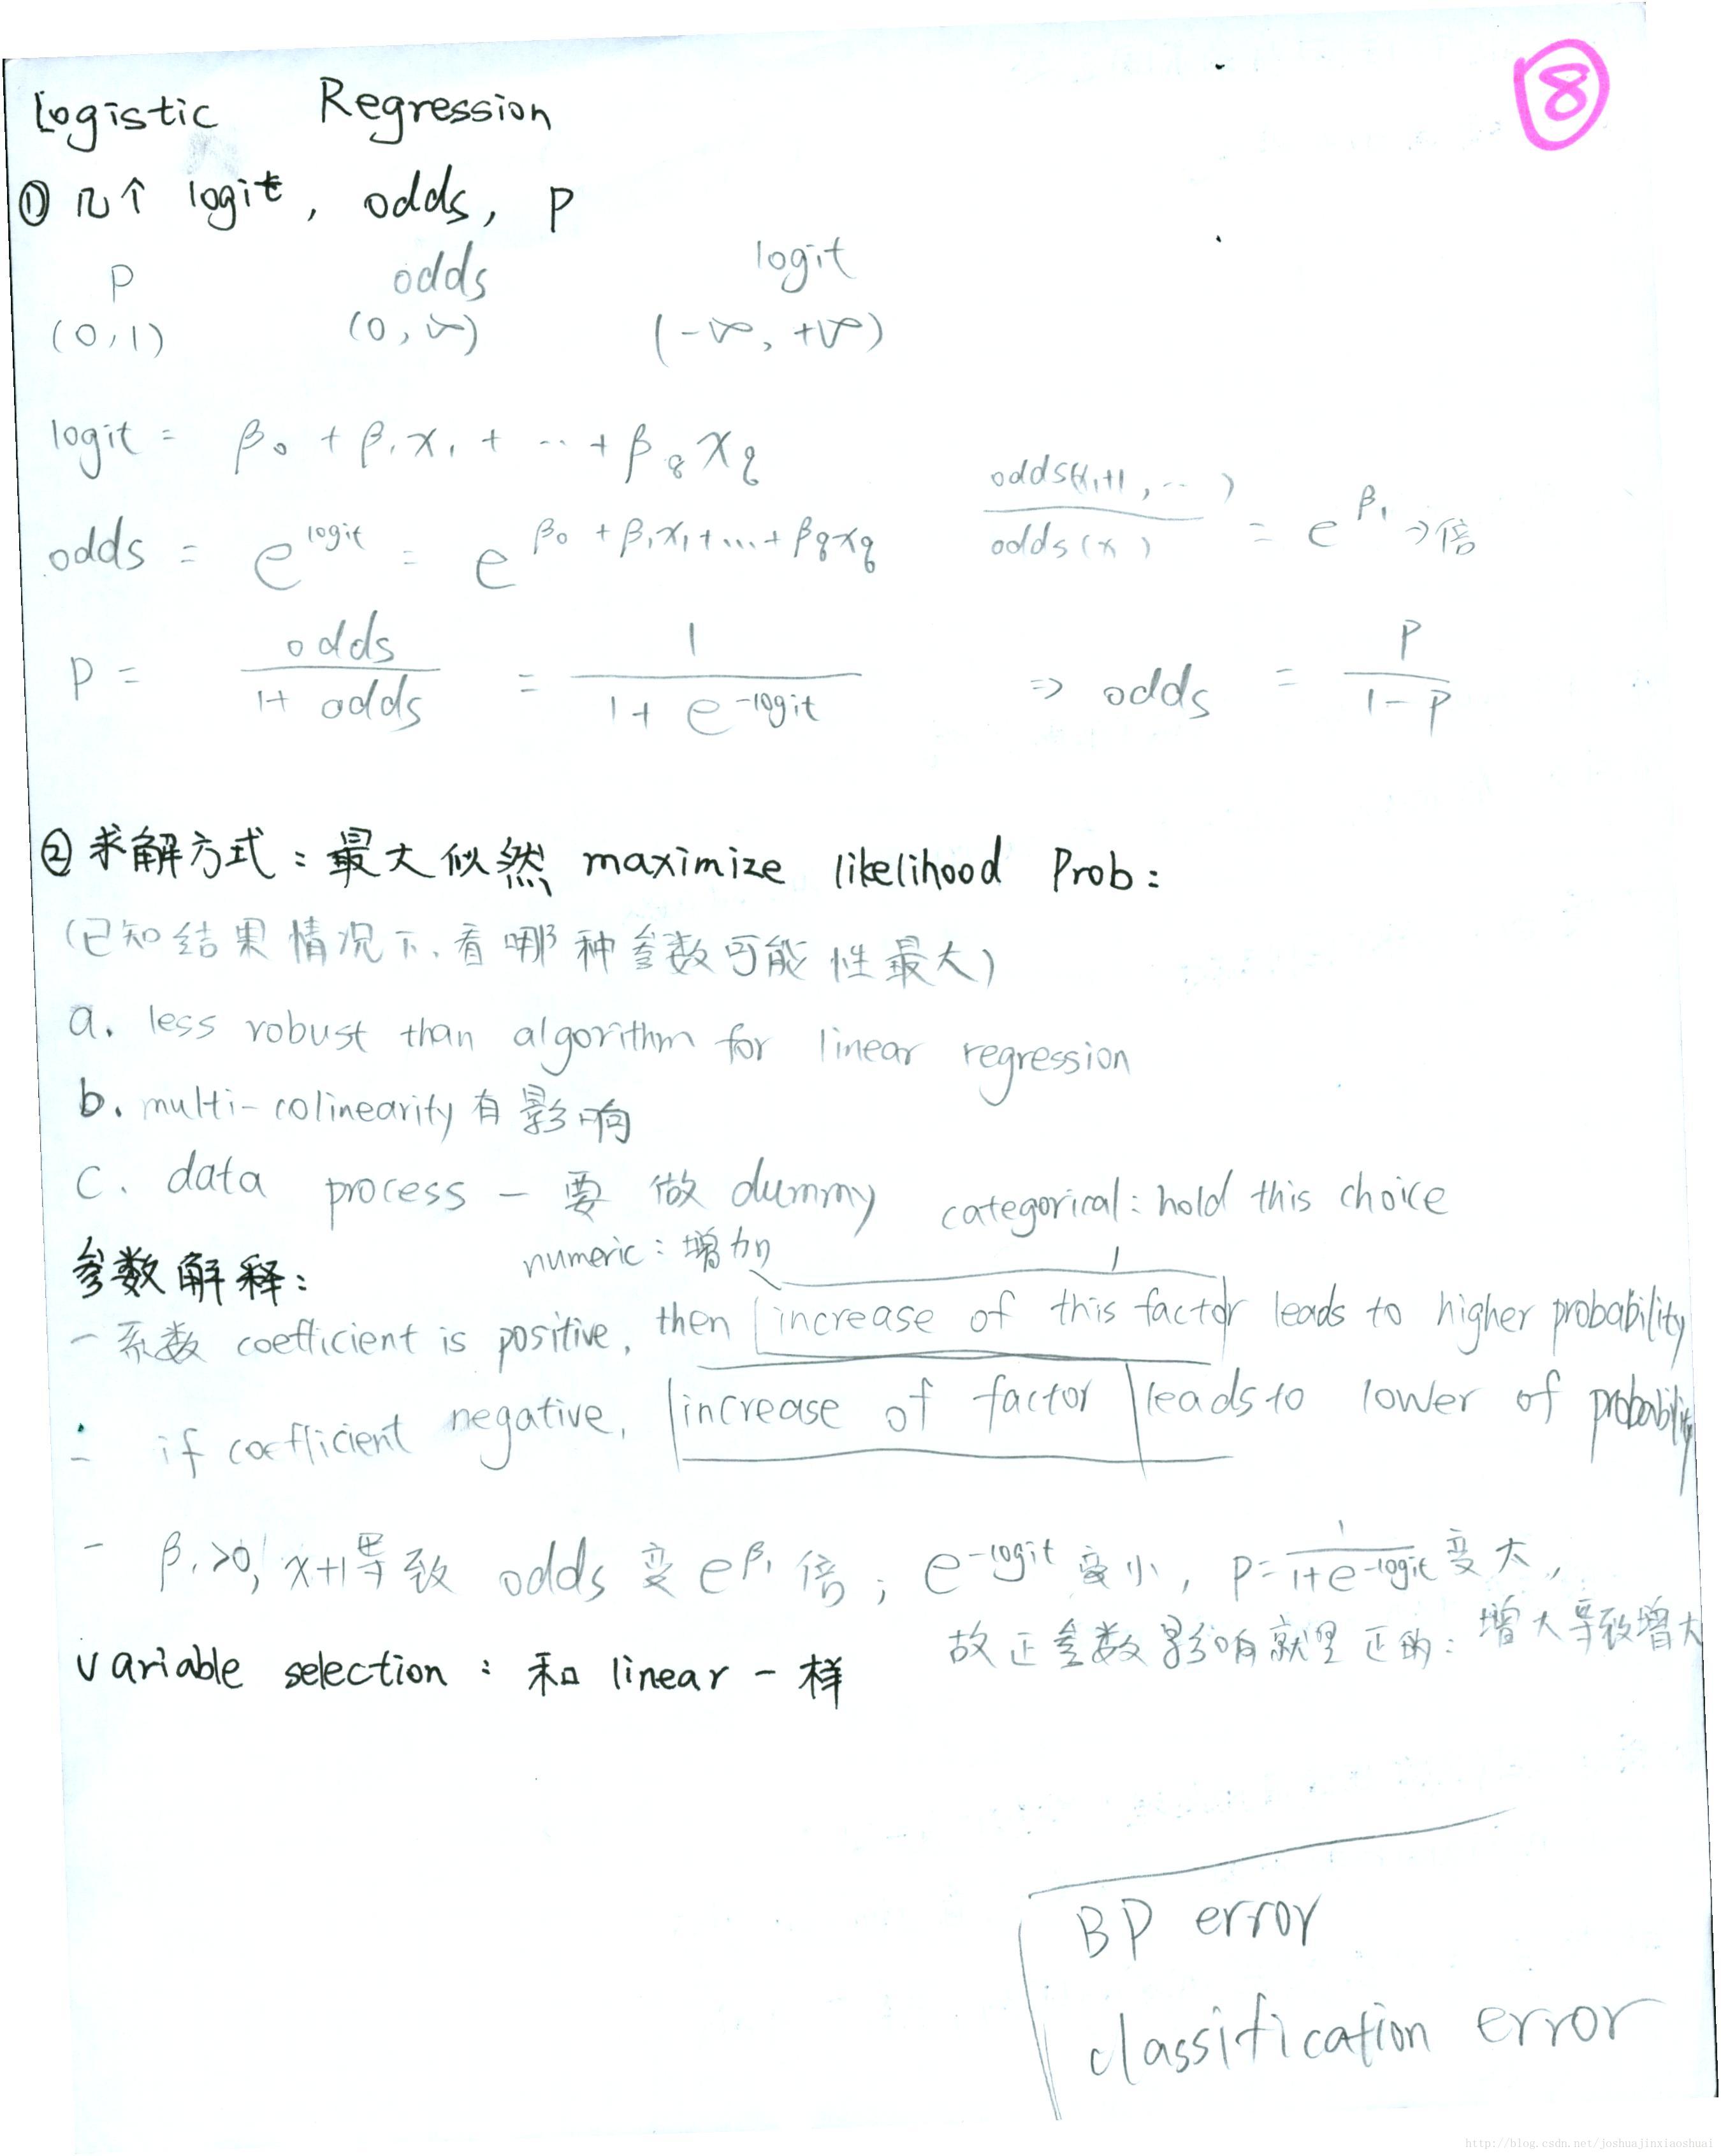 ⑧
Logistic Regression
① 几个 logit, odds, P
P odds logit
(0,1) (0,∞) (-∞, +∞)
logit = β₀ + β₁x₁ + ... + β_q x_q
odds(x₁+1, ...) / odds(x) = e^β₁ → 倍
odds = e^logit = e^(β₀ + β₁x₁ + ... + β_q x_q)
P = odds / (1 + odds) = 1 / (1 + e^-logit) ⇒ odds = P / (1 - P)
② 求解方式: 最大似然 maximize likelihood Prob:
(已知结果情况下, 看哪种参数可能性最大)
a. less robust than algorithm for linear regression
b. multi-colinearity 有影响
c. data process - 要做 dummy categorical: hold this choice
参数解释: numeric: 增加
- 系数 coefficient is positive, then increase of this factor leads to higher probability
- if coefficient negative, increase of factor leads to lower of probability
- β₁>0, x+1 导致 odds 变 e^β₁ 倍; e^-logit 变小, P = 1 / (1+e^-logit) 变大,
故正参数影响就是正的: 增大导致增大
variable selection: 和 linear 一样
BP error
classification error
http://blog.csdn.net/joshuajinxiaoshuai